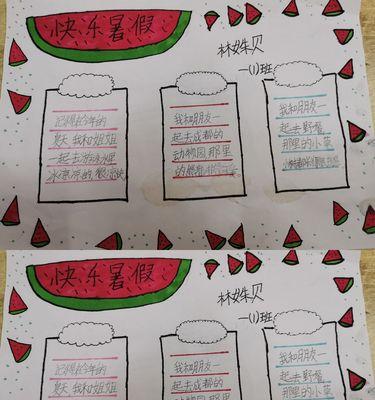 快乐暑假
林姝贝
一(1)班
记得今年的
夏天我和姐姐
一起去游泳
冰凉凉的
我和朋友一
起去成都的
动物园,那里
的
我和朋友一
起去野餐
那里的小菜
快乐暑假
林姝贝
一(1)班
记得今年的
夏天我和姐姐
我和朋友一
起去成都的
我和朋友一
起去野餐
那里的小菜